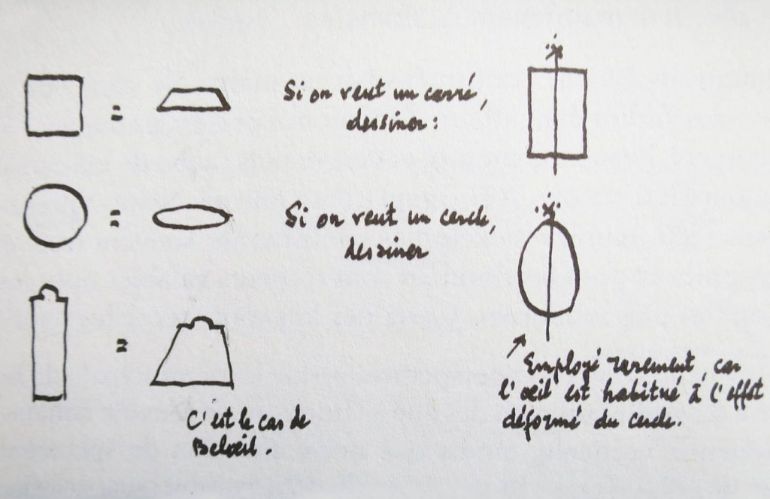 Si on veut un carré,
dessiner :
Si on veut un cercle,
dessiner
C'est le cas de
Belœil
Employé rarement, car
l'œil est habitué à l'effet
déformé du cercle.